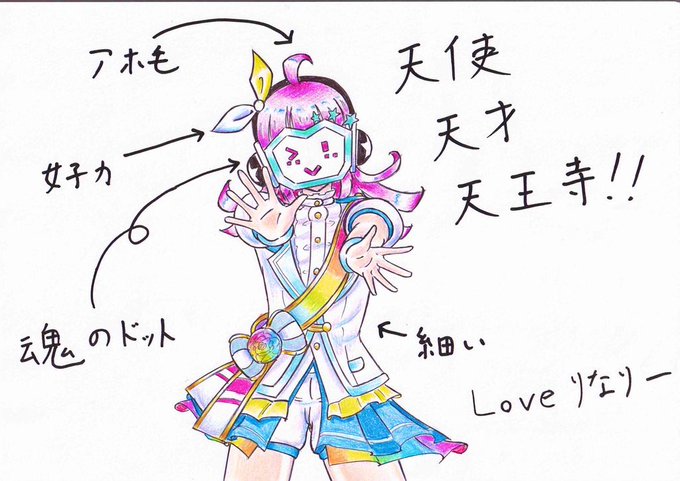 アホ毛
天使
天才
天王寺!!
女子力
魂のドット
細い
Love りなりー